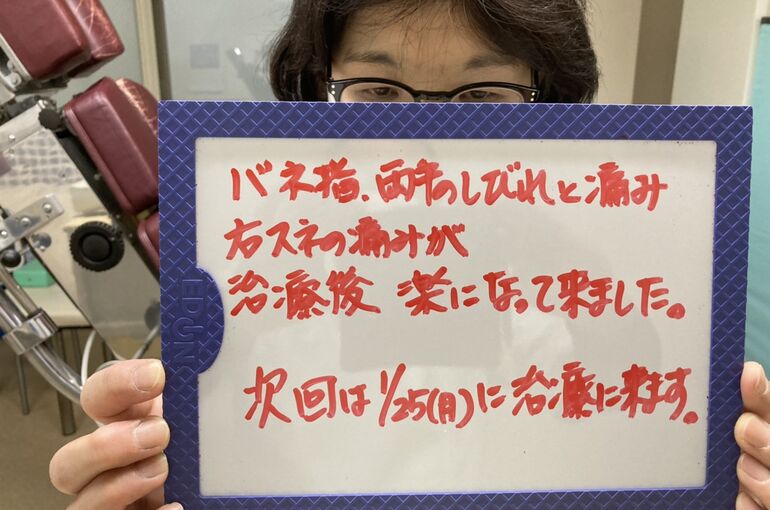 バネ指、両手のしびれと痛み
右スネの痛みが
治療後 楽になって来ました。
次回は1/25(月)に治療に来ます。